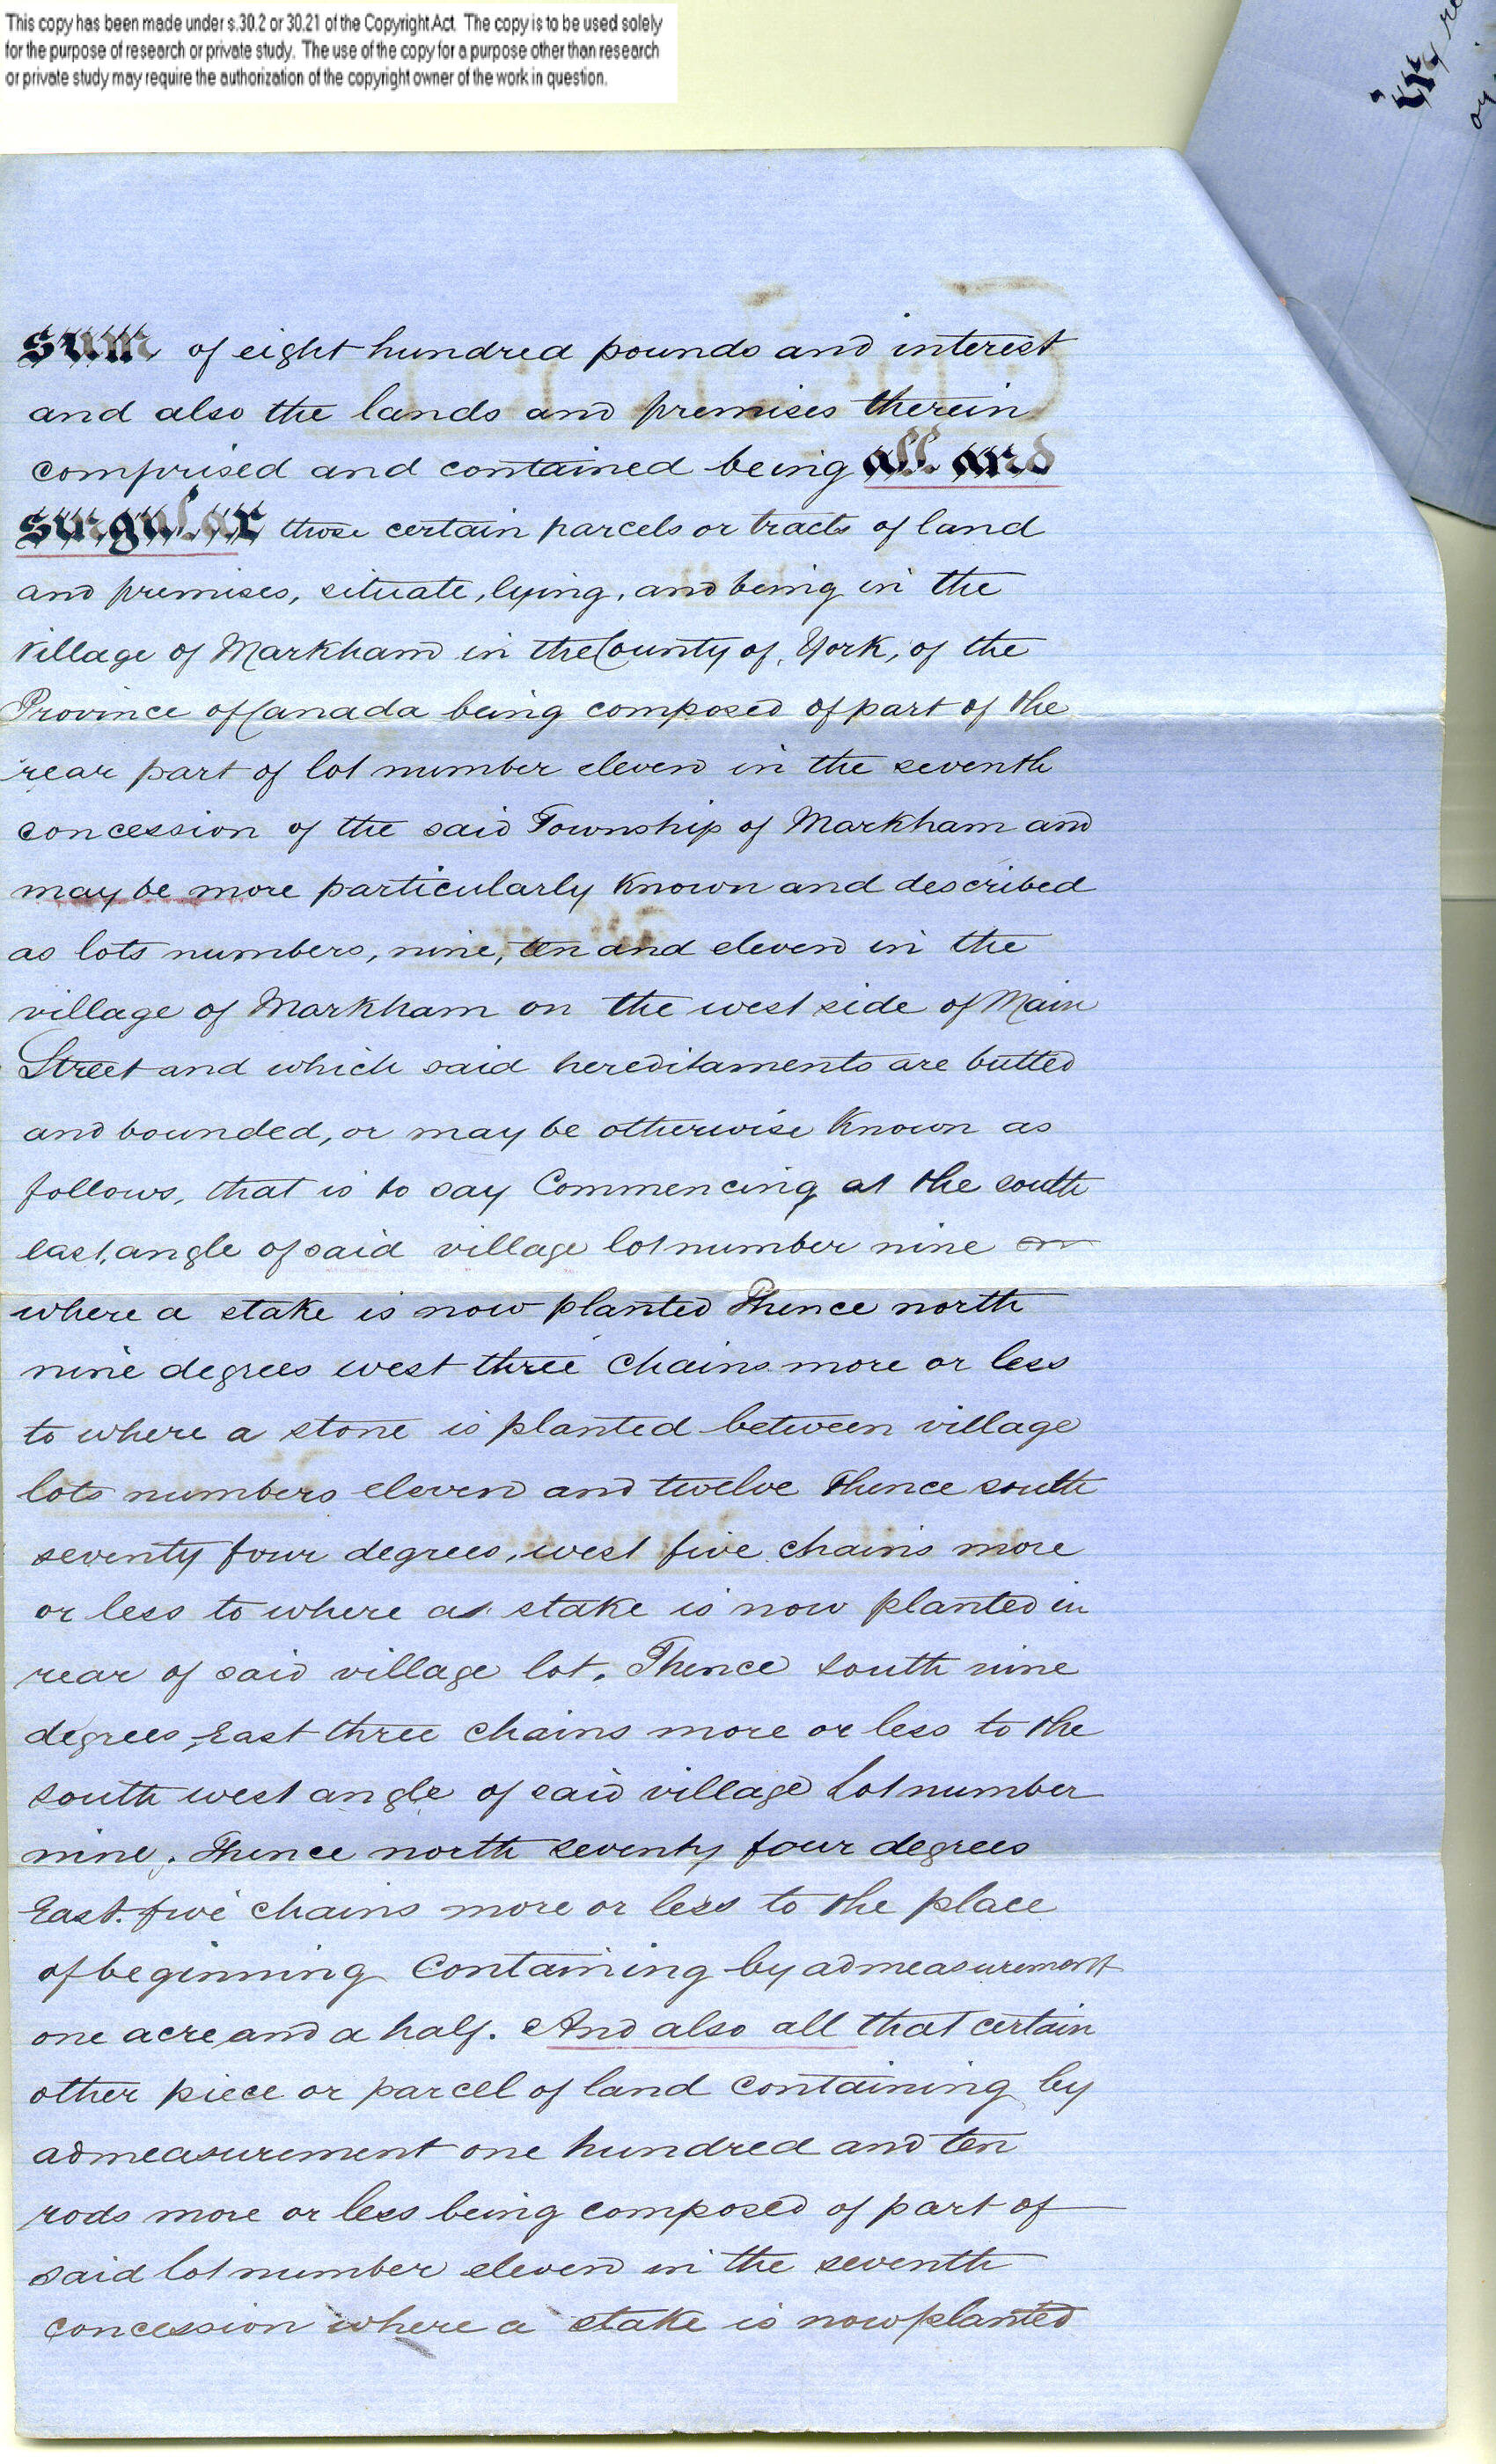 This copy has been made under s.30.2 or 30.21 of the Copyright Act. The copy is to be used solely
for the purpose of research or private study. The use of the copy for a purpose other than research
or private study may require the authorization of the copyright owner of the work in question.
sum of eight hundred pounds and interest
and also the lands and premises therein
comprised and contained being all and
singular those certain parcels or tracts of land
and premises, situate, lying, and being in the
Village of Markham in the County of York, of the
Province of Canada being composed of part of the
rear part of lot number eleven in the seventh
concession of the said Township of Markham and
may be more particularly Known and described
as lots numbers, nine, ten and eleven in the
village of Markham on the west side of Main
Street and which said hereditaments are butted
and bounded, or may be otherwise Known as
follows, that is to say Commencing at the south
east, angle of said village lot number nine
where a stake is now planted Thence north
nine degrees west three Chains more or less
to where a stone is planted between village
lots numbers eleven and twelve Thence south
seventy four degrees, west five chains more
or less to where a stake is now planted in
rear of said village lot. Thence South nine
degrees East three Chains more or less to the
South west angle of said village Lot number
nine. Thence north seventy four degrees
East. five chains more or less to the place
of beginning Containing by admeasurement
one acre and a half. And also all that certain
other piece or parcel of land Containing by
admeasurement one hundred and ten
rods more or less being composed of part of
said lot number eleven in the seventh
concession where a stake is now planted